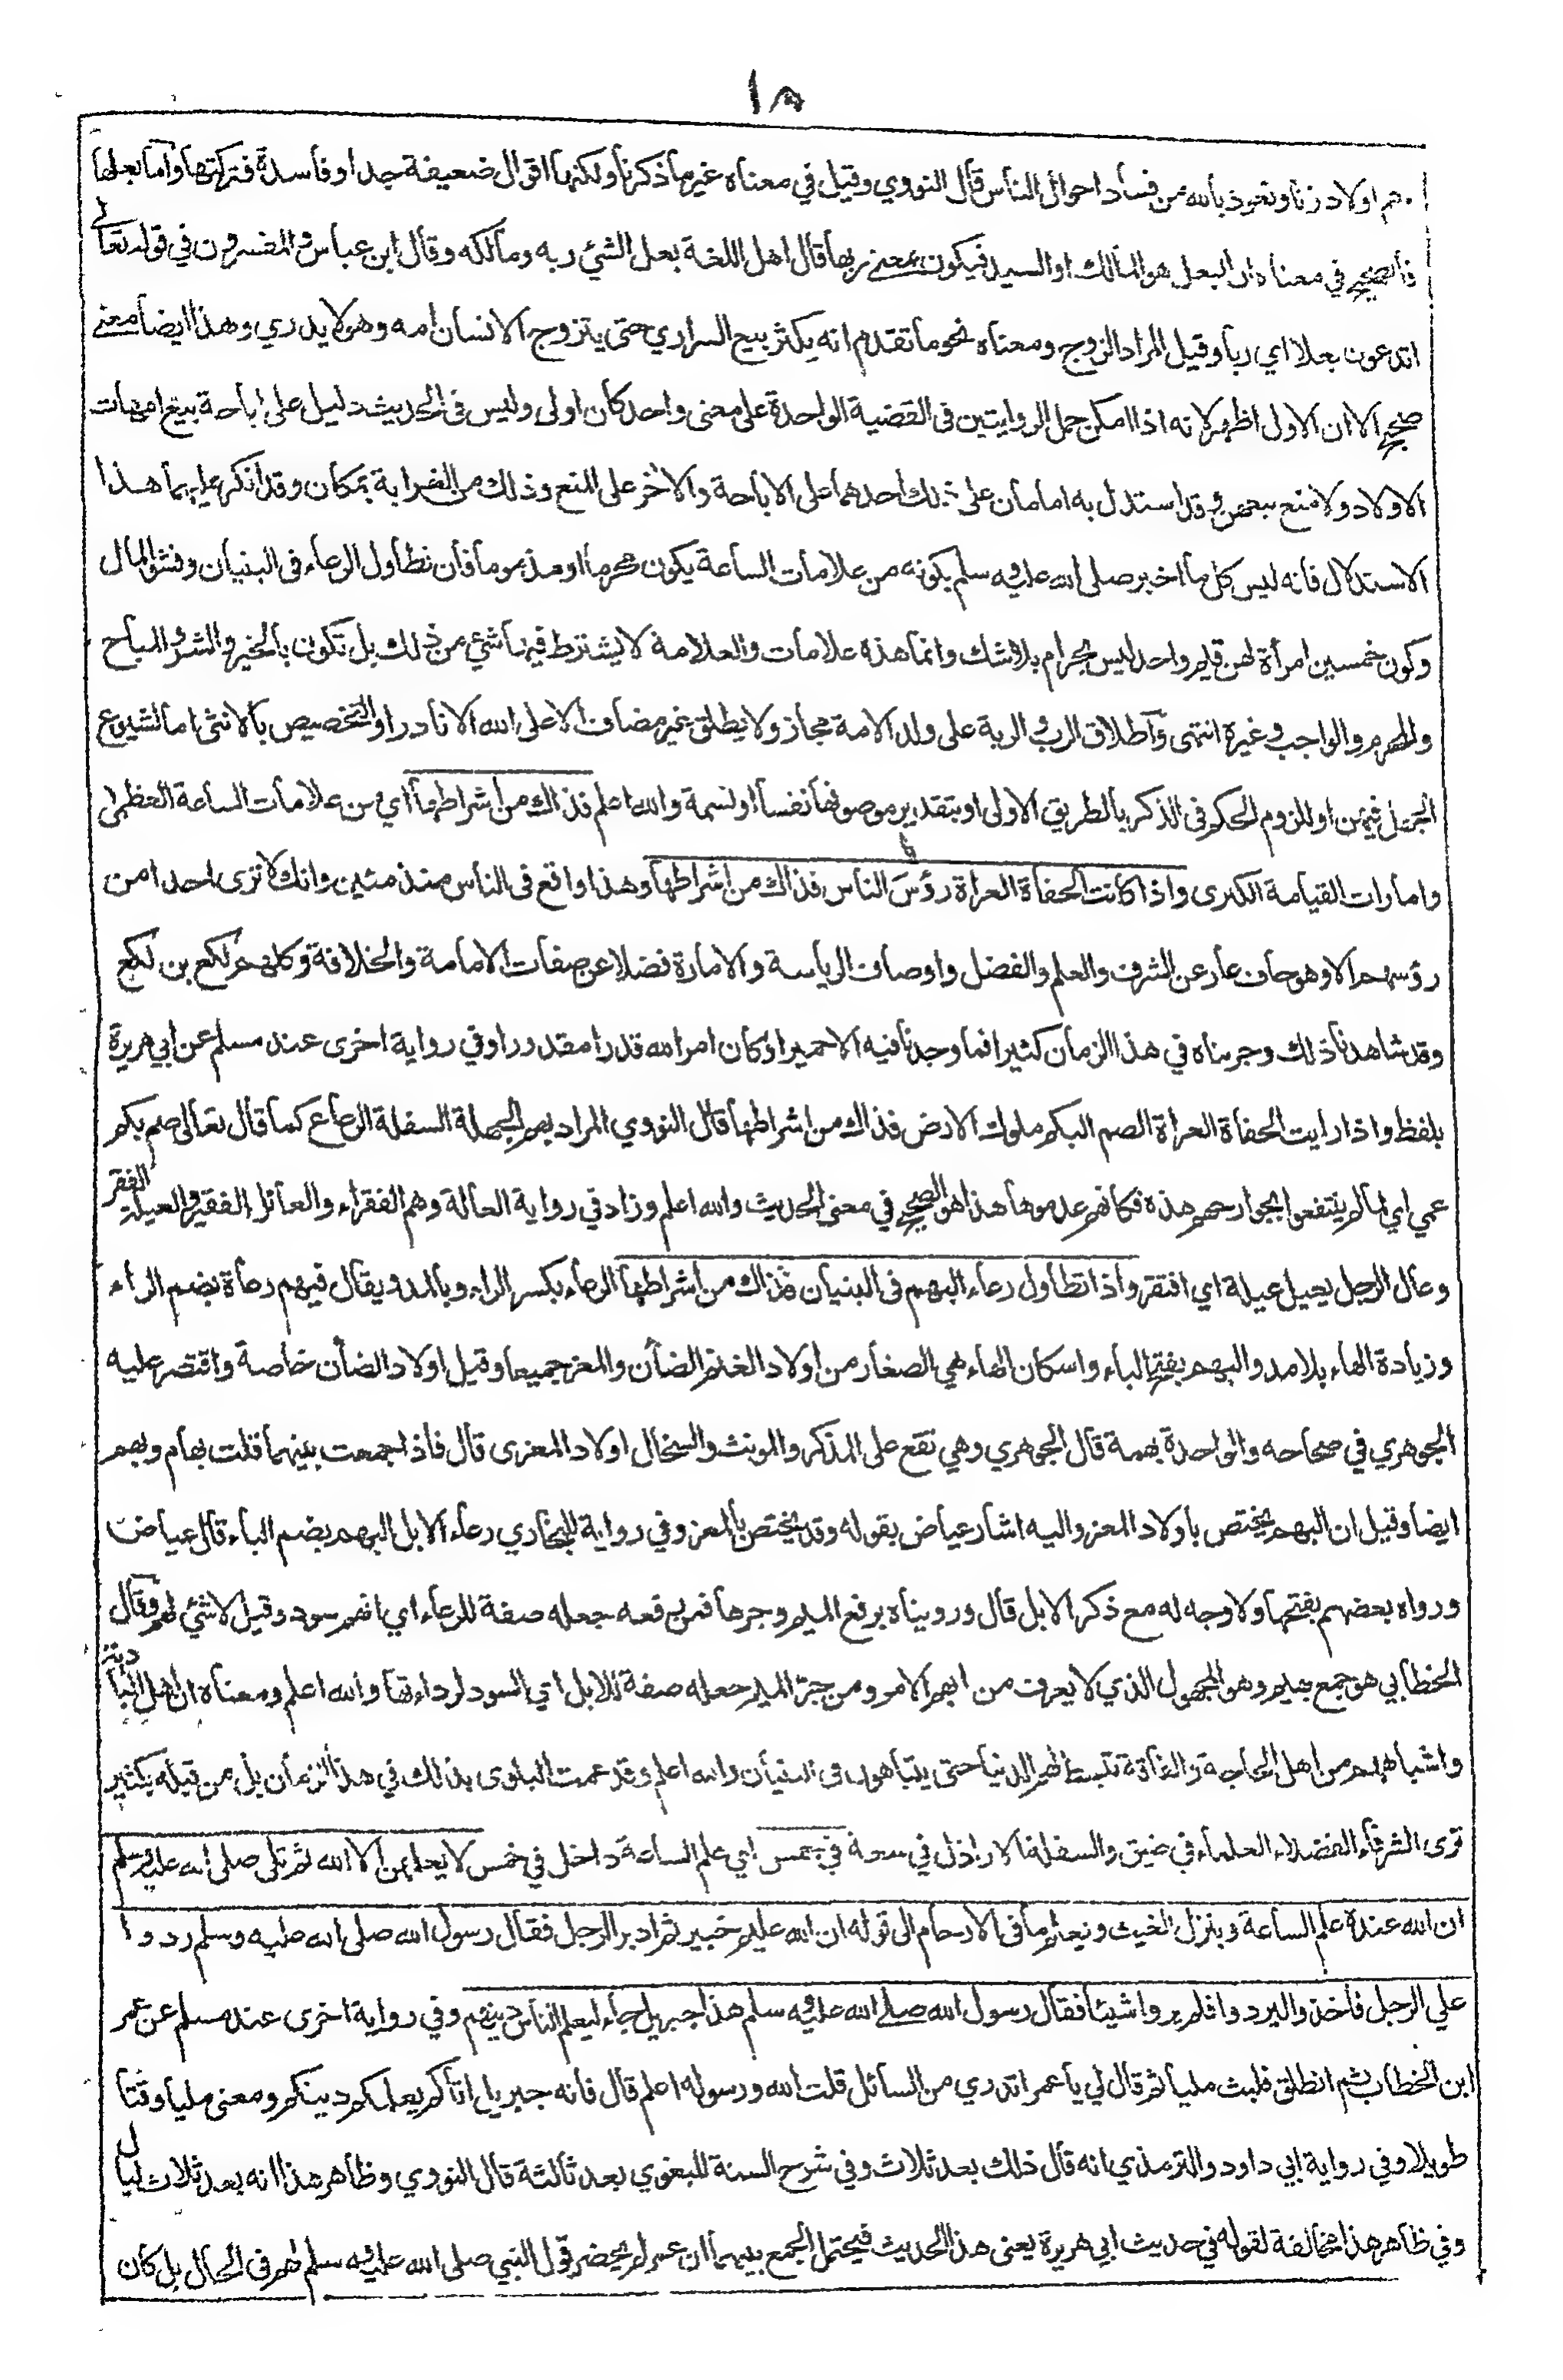 ١٨
هم اولاد زنا ونعوذ بالله من فساد احوال الناس قال النووي وقيل في معناه غير ما ذكرنا ولكنها اقوال ضعيفة جدا او فاسدة فتركتها واما بعلها
فالصحيح في معناه ان البعل هو المالك او السيد فيكون بمعنى ربها قال اهل اللغة بعل الشئ ربه ومالكه وقال ابن عباس والمفسرون في قوله تعالى
اتدعون بعلا اي ربا وقيل المراد الزوج ومعناه نحو ما تقدم انه يكثر بيع السراري حتى يتزوج الانسان امه وهو لا يدري وهذا ايضا معنى
صحيح الا ان الاول اظهر لانه اذا امكن حمل الروايتين في القضية الواحدة على معنى واحد كان اولى وليس في الحديث دليل على اباحة بيع امهات
الاولاد ولا منع بيعهن وقد استدل به امامان على ذلك احدهما على الاباحة والاخر على المنع وذلك من الغرابة بمكان وقد انكر عليهما هذا
الاستدلال فانه ليس كل ما اخبر صلى الله عليه وسلم بكونه من علامات الساعة يكون محرما او مذموما فان تطاول الرعاء في البنيان وفشو المال
وكون خمسين امرأة لهن قيم واحد ليس بحرام بلا شك وانما هذه علامات والعلامة لا يشترط فيها شئ من ذلك بل تكون بالخير والشر والمباح
والمحرم والواجب وغيره انتهى واطلاق الرب والربة على ولد الامة مجاز ولا يطلق غير مضاف الا على الله الا نادرا والتخصيص بالانثى اما لشيوع
الجهل فيهن او للزوم الحكم في الذكر بالطريق الاولى او بتقدير موصوفها نفسا او نسمة والله اعلم فذاك من اشراطها اي من علامات الساعة العظمى
وامارات القيامة الكبرى واذا كانت الحفاة العراة رؤس الناس فذاك من اشراطها وهذا واقع في الناس منذ مئين وانك لا ترى احدا من
رؤسهم الا وهو حاف عار عن الشرف والعلم والفضل واوصاف الرياسة والامارة فضلا عن صفات الامامة والخلافة وكلهم لكع بن لكع
وقد شاهدنا ذلك وجربناه في هذا الزمان كثيرا فما وجدنا فيه الا حميرا وكان امر الله قدرا مقدورا وفي رواية اخرى عند مسلم عن ابي هريرة
بلفظ واذا رايت الحفاة العراة الصم البكم ملوك الارض فذاك من اشراطها قال النووي المراد بهم الجهلة السفلة الرعاع كما قال تعالى صم بكم
عمي اي لما لم ينتفعوا بجوارحهم هذه فكانهم عدموها هذا هو الصحيح في معنى الحديث والله اعلم وزاد في رواية العالة وهم الفقراء والعائل الفقير والعيلة الفقر
وعال الرجل يعيل عيلة اي افتقر واذا تطاول رعاء البهم في البنيان فذاك من اشراطها الرعاء بكسر الراء وبالمد ويقال فيهم رعاة بضم الراء
وزيادة الهاء بلا مد والبهم بفتح الباء واسكان الهاء هي الصغار من اولاد الغنم الضأن والمعز جميعا وقيل اولاد الضأن خاصة واقتصر عليه
الجوهري في صحاحه والواحدة بهمة قال الجوهري وهي تقع على المذكر والمونث والسخال اولاد المعزى قال فاذا جمعت بينهما قلت بهام وبهم
ايضا وقيل ان البهم يختص باولاد المعز واليه اشار عياض بقوله وقد يختص بالمعز وفي رواية للبخاري رعاء الابل البهم بضم الباء قال عياض
ورواه بعضهم بفتحها ولا وجه له مع ذكر الابل قال ورويناه برفع الميم وجرها فمن رفعه جعله صفة للرعاء اي انهم سود وقيل لا شئ لهم وقال
الخطابي هو جمع بهيم وهو المجهول الذي لا يعرف من ابهم الامر ومن جر الميم جعله صفة للابل اي السود لرداءتها والله اعلم ومعناه ان اهل البادية
واشباههم من اهل الحاجة والفاقة تبسط لهم الدنيا حتى يتباهون في البنيان والله اعلم وقد عمت البلوى بذلك في هذا الزمان بل من قبله بكثير
ترى الشرفاء الفضلاء العلماء في ضيق والسفلة الاراذل في سعة في خمس اي علم الساعة داخل في خمس لا يعلمهن الا الله ثم تلى صلى الله عليه وسلم
ان الله عنده علم الساعة وينزل الغيث ويعلم ما في الارحام الى قوله ان الله عليم خبير ثم ادبر الرجل فقال رسول الله صلى الله عليه وسلم ردوا
علي الرجل فاخذوا ليردوه فلم يروا شيئا فقال رسول الله صلى الله عليه وسلم هذا جبريل جاء ليعلم الناس دينهم وفي رواية اخرى عند مسلم عن عمر
ابن الخطاب ثم انطلق فلبث مليا ثم قال لي يا عمر اتدري من السائل قلت الله ورسوله اعلم قال فانه جبريل اتاكم يعلمكم دينكم ومعنى مليا وقتا
طويلا وفي رواية ابي داود والترمذي انه قال ذلك بعد ثلاث وفي شرح السنة للبغوي بعد ثالثة قال النووي وظاهر هذا انه بعد ثلاث ليال
وفي ظاهر هذا مخالفة لقوله في حديث ابي هريرة يعنى هذا الحديث فيحتمل الجمع بينهما ان عمر لم يحضر قول النبي صلى الله عليه وسلم لهم في الحال بل كان